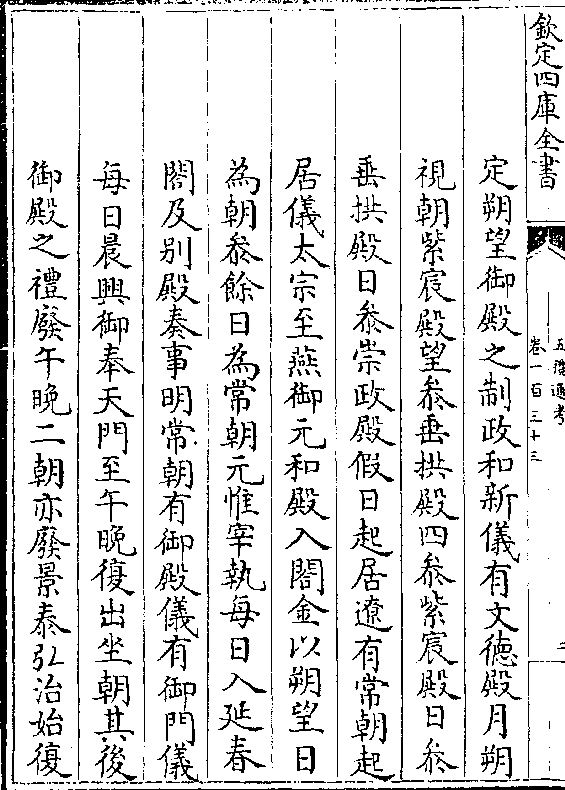 欽定四庫全書
五禮通考
卷一百三十三
二
定朔望御殿之制政和新儀有文德殿月朔
視朝紫宸殿望叅垂拱殿四叅紫宸殿日叅
垂拱殿日叅崇政殿假日起居遼有常朝起
居儀太宗至燕御元和殿入閤金以朔望日
為朝叅餘日為常朝元惟宰執每日入延春
閤及别殿奏事明常朝有御殿儀有御門儀
每日晨興御奉天門至午晚復出坐朝其後
御殿之禮廢午晚二朝亦廢景泰弘治始復